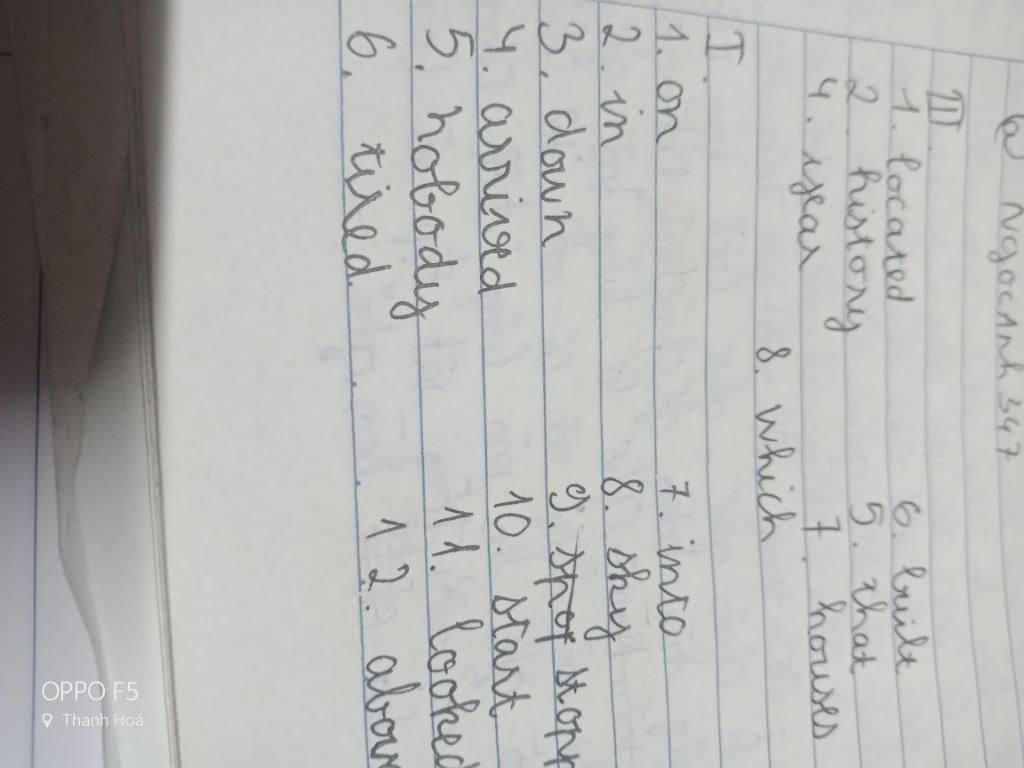 @ NgocAnh347
III
1. located 6. built
2. history 5. that
4. year 7. houses
8. which
I.
1. on 7. into
2. in 8. sky
3. down 9. stopp
4. arrived 10. start
5. nobody 11. looked
6. tired 12. abou
OPPO F5
Thanh Hoá